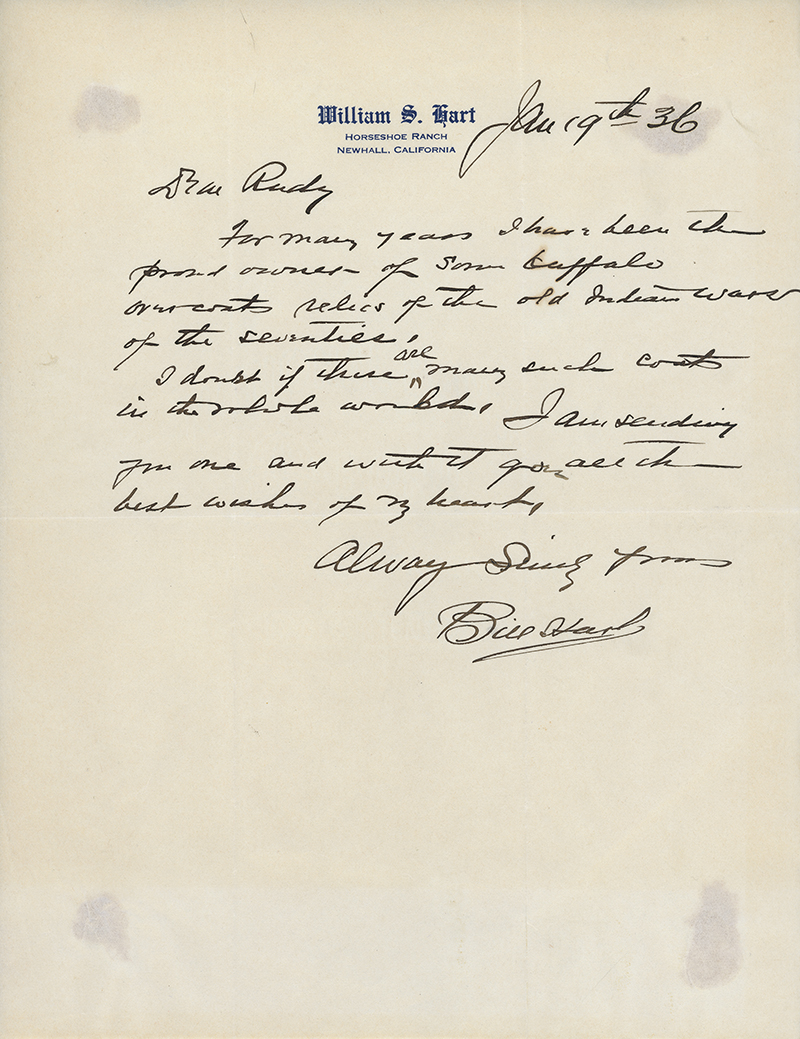 William S. Hart
HORSESHOE RANCH
NEWHALL, CALIFORNIA
Jan 19th 36
Dear Rudy
For many years I have been the
proud owner of some buffalo
overcoats relics of the old Indian wars
of the seventies.
I doubt if there are many such coats
in the whole world. I am sending
you one and with it goes all the
best wishes of my heart,
Always Sincy Yours
Bill Hart